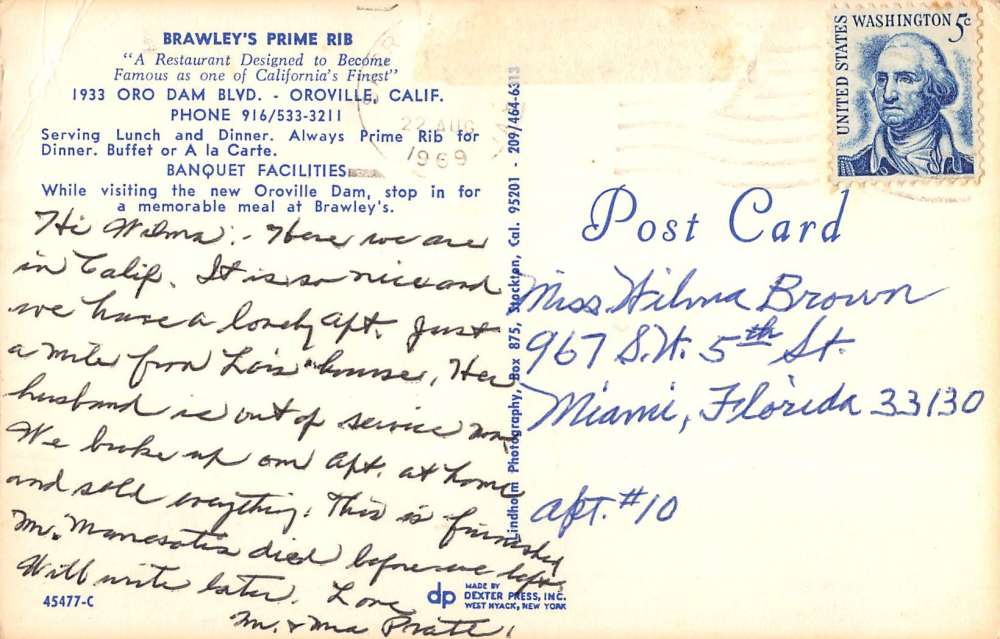 BRAWLEY'S PRIME RIB
"A Restaurant Designed to Become
Famous as one of California's Finest"
1933 ORO DAM BLVD. - OROVILLE, CALIF.
PHONE 916/533-3211
Serving Lunch and Dinner. Always Prime Rib for
Dinner. Buffet or A la Carte.
BANQUET FACILITIES
While visiting the new Oroville Dam, stop in for
a memorable meal at Brawley's.
Hi Wilma:- Here we are
in Calif. It is so nice and
we have a lovely apt. Just
a mile from Lois' house. Her
husband is out of service now.
We broke up our apt. at home
and sold everything. This is furnished
Mr. died before we left.
Will write later. Love
Mr. & Mrs Pratt.
45477-C
Lindholm Photography, Box 875, Stockton, Cal. 95201 - 209/464-6313
dp MADE BY
DEXTER PRESS, INC.
WEST NYACK, NEW YORK
22 AUG
1969
UNITED STATES
WASHINGTON 5c
Post Card
Miss Wilma Brown
967 S.W. 5th St.
Miami, Florida 33130
apt. #10